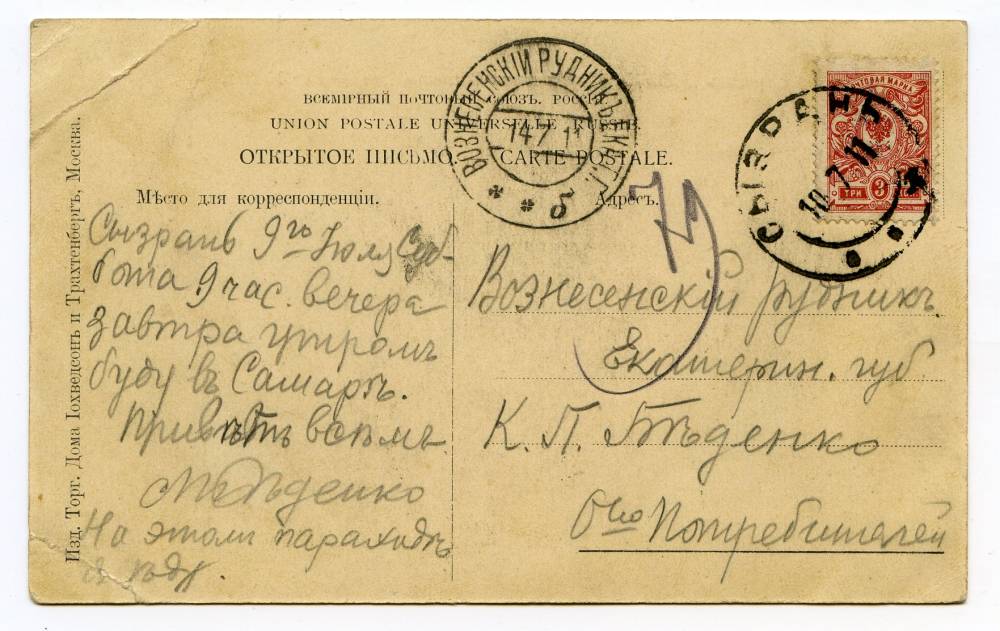 ВСЕМІРНЫЙ ПОЧТОВЫЙ СОЮЗЪ. РОССІЯ.
UNION POSTALE UNIVERSELLE. RUSSIE.
ОТКРЫТОЕ ПИСЬМО. CARTE POSTALE.
Мѣсто для корреспонденціи.
Адресъ.
Сызрань 9го Іюля Суб-
бота 9 час. вечера
завтра утромъ
буду въ Самарѣ.
Привѣтъ всѣмъ
На этомъ параходѣ
я ѣду
Вознесенскій рудникъ
Екатерин. губ.
К. П. Бѣденко
О-во Потребителей
79
ВОЗНЕСЕНСКІЙ РУДНИКЪ ЕКАТ. Г.
14 7 11
б
ПОЧТОВАЯ МАРКА
ТРИ 3
СЫЗРАНЬ
10 7 11
Изд. Торг. Дома Іохведсонъ и Трахтенбергъ, Москва.